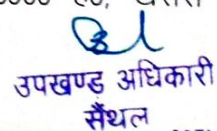 उपखण्ड अधिकारी
सैंथल